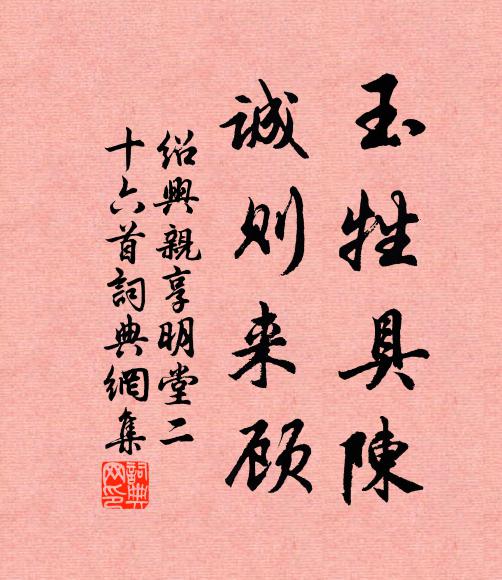 玉牲具陳
誠则来顾
紹興親享明堂二
十六首詞典網集
詞典网印